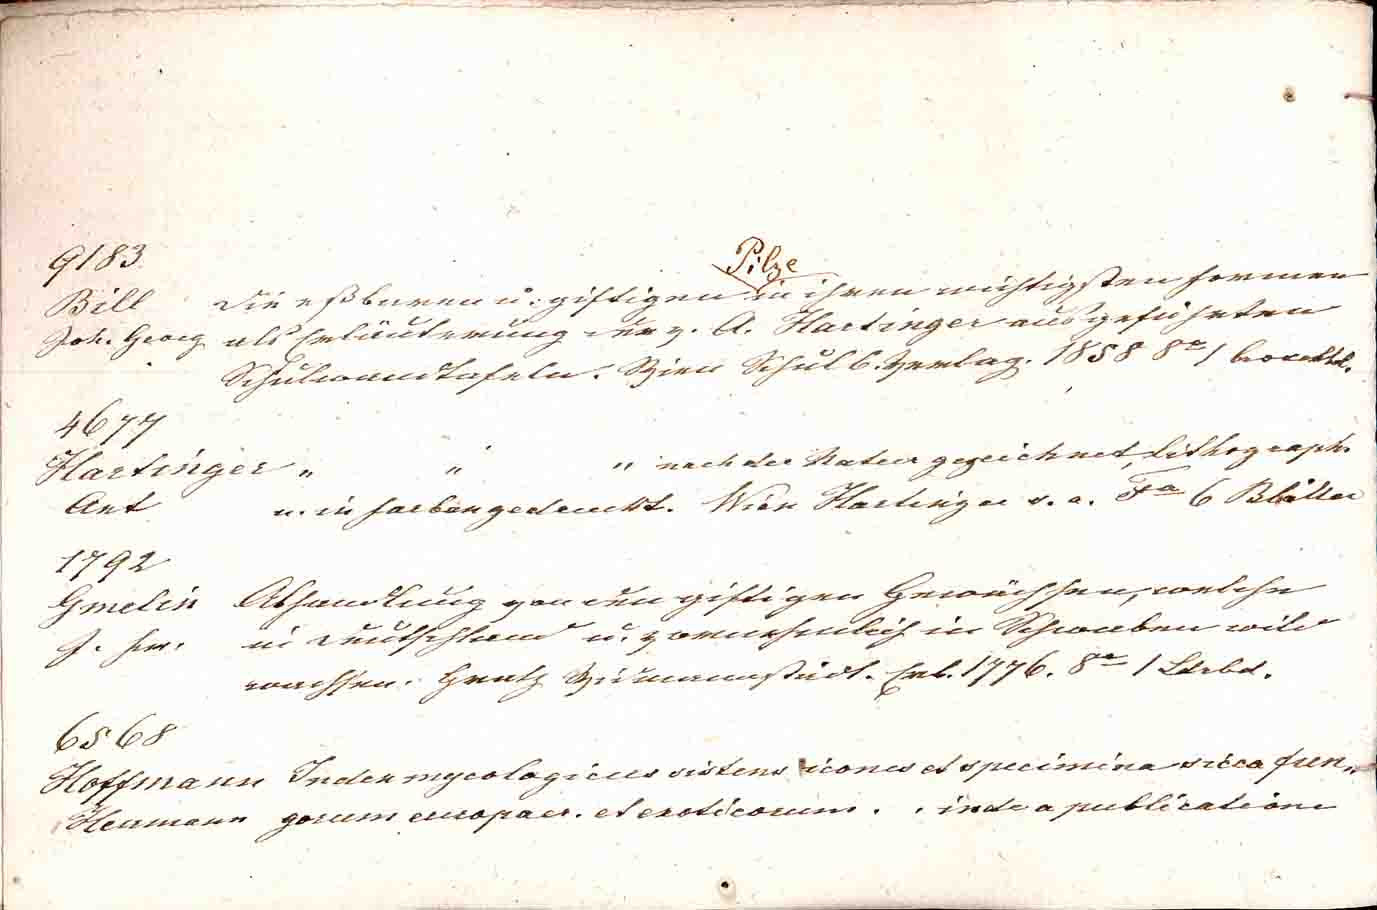 9183.
Pilze
Bill Die eßbaren u. giftigen in ihren wichtigsten Formen
Joh. Georg als Erläuterung der v. A. Hartinger ausgeführten
Schulwandtafeln. Wien Schulb. Verlag. 1858 8º 1
4677
Hartinger " " " nach der Natur gezeichnet, lithograph.
Ant u. in Farben gedruckt. Wien Hartinger s. a. Fº 6 Blätter
1792
Gmelin Abhandlung von den giftigen Gewächsen, welche
J. Fr. in Deutschland u. vornehmlich in Schwaben wild
wachsen. Gratz Widmannstädt. Erb. 1776. 8º 1 Ldrbd.
6568
Hoffmann Index mycologicus sistens icones et specimina sicca fun„
Hermann gorum europaer. et exoticorum. . inde a publicatione